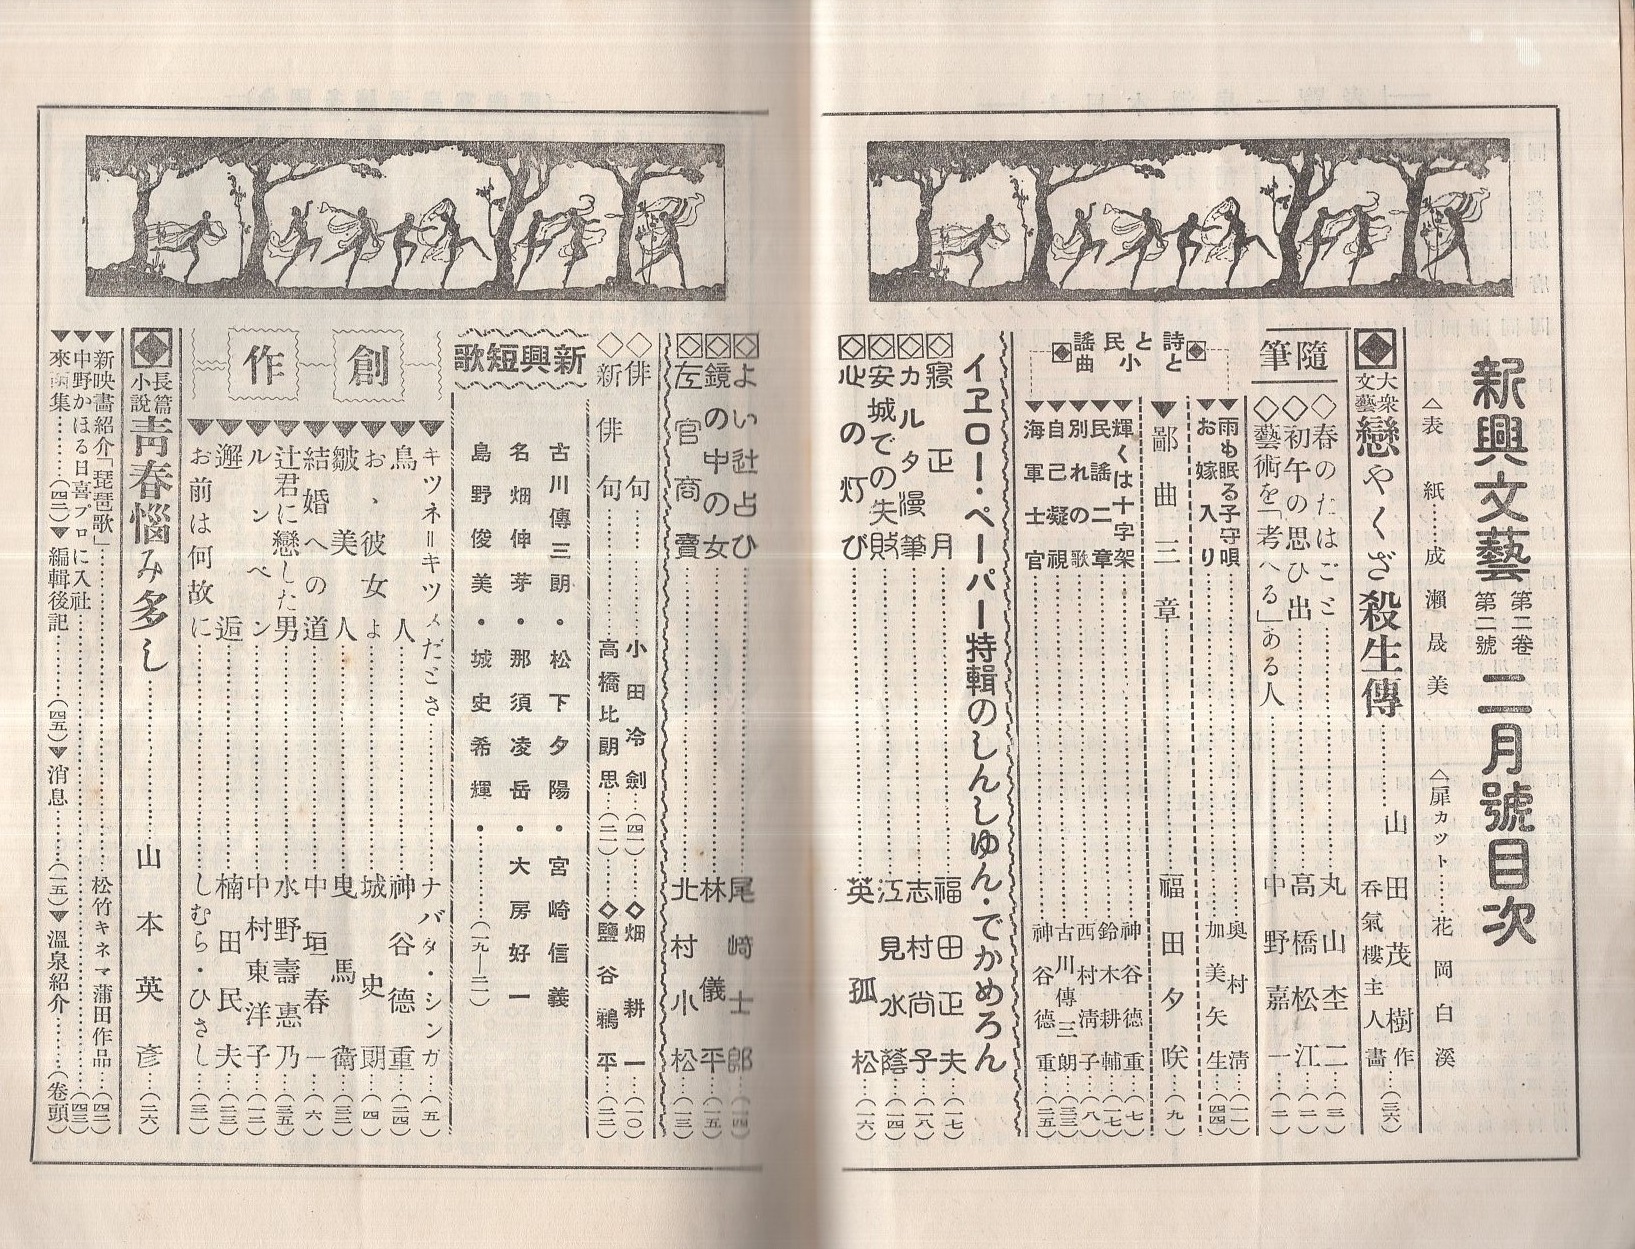 新興文藝 第二卷 第二號 二月號目次
△表紙……成瀨晟美 △扉カツト……花岡白溪
大衆文藝 戀やくざ殺生傳……山田茂樹作 呑氣樓主人畫…(三六)
隨筆
◇春のたはごと……丸山杢二…(三)
◇初午の思ひ出……高橋松江…(二)
◇藝術を「考へる」ある人……中野嘉一…(二)
詩と民謠と小曲
▼雨も眠る子守唄……奥村淸…(一一)
▼お嫁入り……加美矢生…(四四)
▼鄙曲三章……福田夕咲…(九)
▼輝くは十字架……神谷德重…(七)
▼民謠二章……鈴木耕輔…(一七)
▼別れの歌……西村淸子…(八)
▼自己凝視……古川傳三朗…(三三)
▼海軍士官……神谷德重…(二五)
イエロー・ペーパー特輯のしんしゆん・でかめろん
寢正月……福田正夫…(一七)
カルタ漫筆……志村尚子…(一八)
安城での失敗……江見水蔭…(一四)
心の灯び……英孤松…(一六)
よい辻占ひ……尾崎士郎…(一四)
鏡の中の女……林儀平…(一五)
左官商賣……北村小松…(一三)
◇俳句……小田冷劍…(四一)◇畑耕一…(一〇)
◇新俳句……高橋比朗思…(二一)◇鹽谷鵜平…(三二)
新興短歌
古川傳三朗・松下夕陽・宮崎信義
名畑伸芽・那須凌岳・大房好一
島野俊美・城史希輝・………(一九—二一)
創作
▼キツネ＝キツメだとさ……ナバタ・シンガ…(五)
▼鳥人……神谷德重…(二四)
▼お、彼女よ……城史朗…(四)
▼皺美人……曳馬衞…(三三)
▼結婚への道……中垣春一…(六)
▼辻君に戀した男……水野壽惠乃…(三五)
▼ルンペン……中村東洋子…(一三)
▼邂逅……楠田民夫…(二三)
▼お前は何故に……しむら・ひさし…(三一)
長篇小說 靑春惱み多し……山本英彦…(二六)
▼新映畫紹介「琵琶歌」……松竹キネマ蒲田作品…(四二)
▼中野かほる日喜プロに入社……(四三)
▼來函集……(四二)▼編輯後記……(四五)▼消息……(一五)▼溫泉紹介……(卷頭)